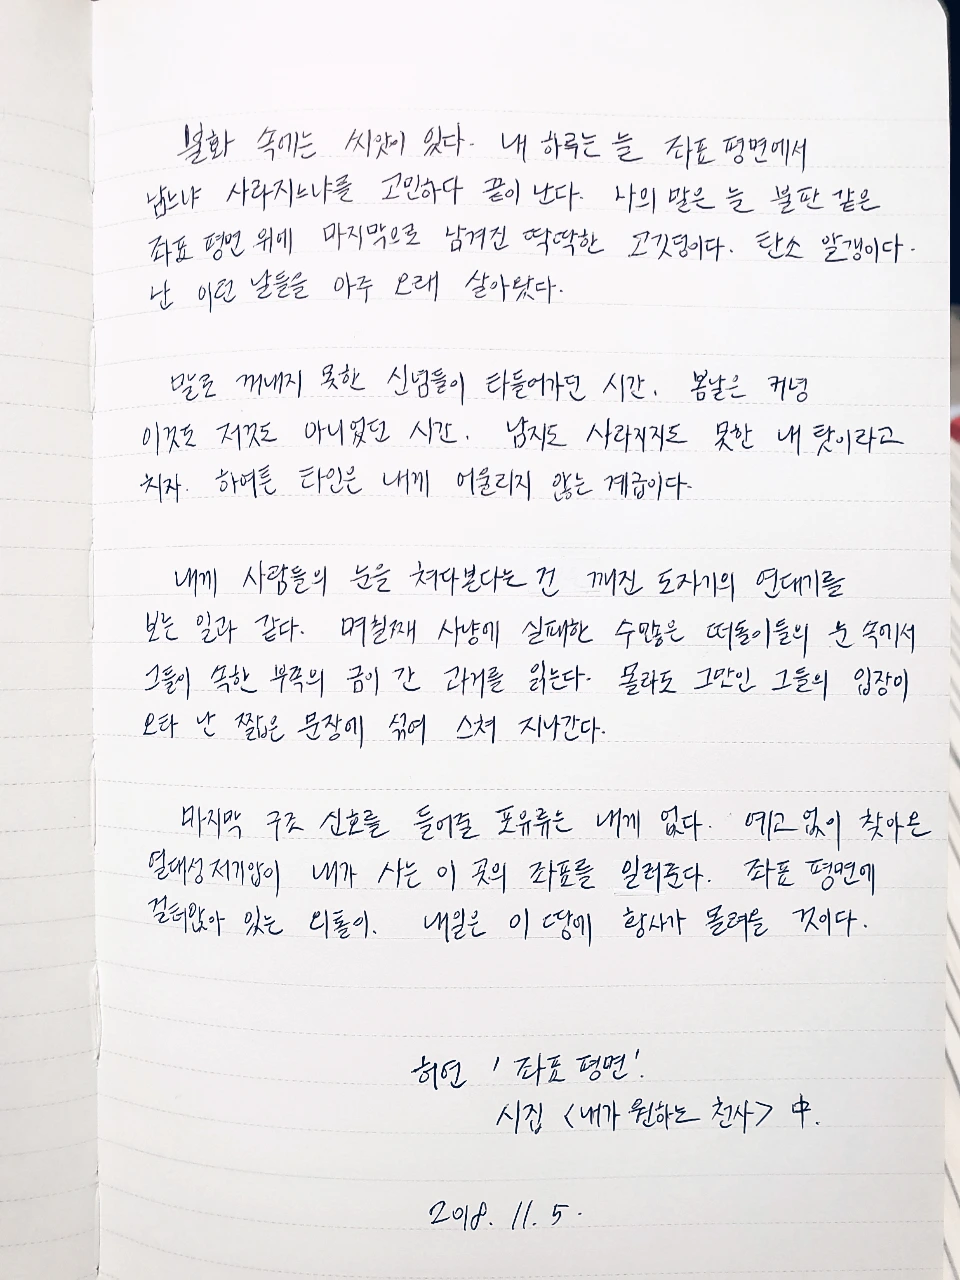 불화 속에는 씨앗이 있다. 내 하루는 늘 좌표 평면에서
남느냐 사라지느냐를 고민하다 끝이 난다. 나의 말은 늘 불판 같은
좌표 평면 위에 마지막으로 남겨진 딱딱한 고깃덩이다. 탄소 알갱이다.
난 이런 날들을 아주 오래 살아왔다.
말로 꺼내지 못한 신념들이 타들어가던 시간. 봄날은 커녕
이것도 저것도 아니었던 시간. 남지도 사라지지도 못한 내 탓이라고
치자. 하여튼 타인은 내게 어울리지 않는 계급이다.
내게 사람들의 눈을 쳐다본다는 건 깨진 도자기의 연대기를
보는 일과 같다. 며칠째 사냥에 실패한 수많은 떠돌이들의 눈 속에서
그들이 속한 부족의 금이 간 과거를 읽는다. 몰라도 그만인 그들의 입장이
오타 난 짧은 문장에 섞여 스쳐 지나간다.
마지막 구조 신호를 들어줄 포유류는 내게 없다. 예고 없이 찾아온
열대성 저기압이 내가 사는 이 곳의 좌표를 일러준다. 좌표 평면에
걸터앉아 있는 외톨이. 내일은 이 땅에 황사가 몰려올 것이다.
허연 '좌표 평면'.
시집 <내가 원하는 천사> 中.
2018. 11. 5.